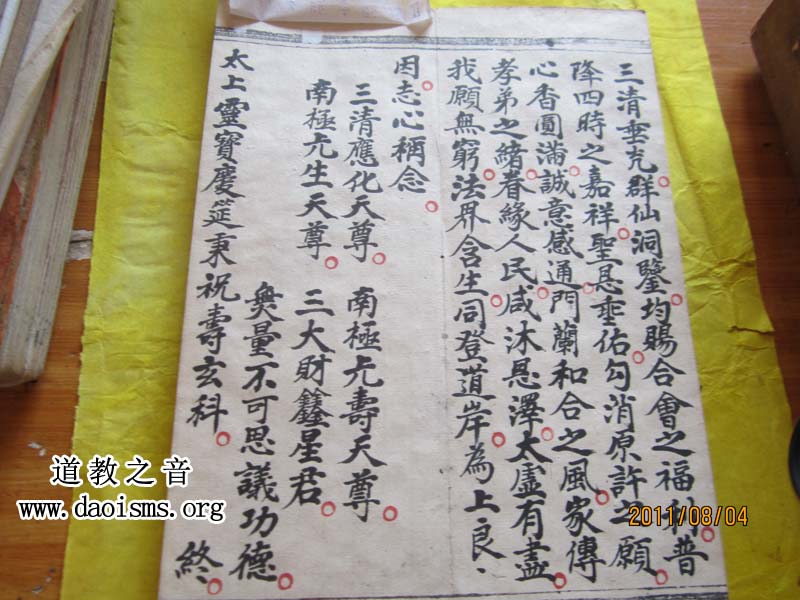 三清垂克群仙洞鑒均賜合會之福利普
降四時之嘉祥聖恩垂佑勾消原許之願
心香圓滿誠意感通門蘭和合之風家傳
孝弟之緒眷緣人民咸沐恩澤太虛有盡
我願無窮法界含生同登道岸為上良、
因志心稱念
三清應化天尊 南極尢壽天尊
南極尢生天尊 三大財鑫星君
無量不可思議功德
太上靈寶慶筵東祝壽玄科 終
道教之音
www.daoisms.org
2011/08/04